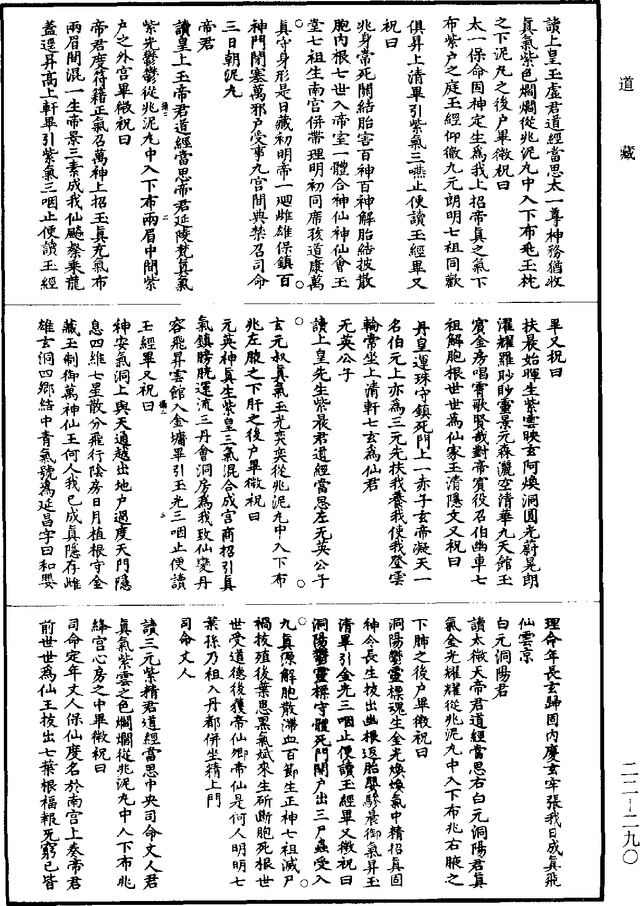 道藏
讀上皇玉虛君道經當思太一尊神務猶收
真氣紫色爛爛從兆泥丸中入下布兆玉枕
之下泥丸之後戶畢微祝曰
太一保命固神定生為我上招帝真之氣下
布紫戶之庭玉經仰徹九元朗明七祖同歡
俱昇上清畢引紫氣三嚥止便讀玉經畢又
祝曰
兆身常死關結胎害百神百神解胎結披散
胞內根七世入帝室一體合神仙神仙會玉
堂七祖生南宮併帶理明初同席孩道康萬
真守身形是日藏初明帝一迴雌雄保鎮百
神門閉塞萬邪戶受事九宮間典禁召司命
三日朝泥丸
帝君
讀皇上玉帝君道經當思帝君延陵梵真氣
紫光鬱鬱從兆泥丸中入下布兩眉中間紫
戶之外宮畢微祝曰
帝君度符籍正氣召萬神上招玉真充氣布
兩眉間混一生帝景三素成我仙飈粲乘龍
蓋逕昇高上軒畢引紫氣三咽止便讀玉經
畢又祝曰
扶晨始暉生紫雲映玄阿煥洞圓光蔚晃朗
濯耀羅眇眇靈景元森灑空清華九天館玉
賓金房唱霄歌賢哉對帝賓役召伯幽車七
祖解胞根世世為仙家玉清隱文又祝曰
丹皇運珠守鎮死門上一赤子玄帝凝天一
名伯元上亦為三元先扶我養我使我登雲
輪常坐上清軒七玄為仙君
无英公子
讀上皇先生紫晨君道經當思左无英公子
玄元叔真氣玉光奕奕從兆泥丸中入下布
兆左腋之下肝之後戶畢微祝曰
元英神真生紫皇三氣混合成宮商招引真
氣鎮膀胱運流三丹會洞房為我致仙變丹
容飛昇雲館入金墉畢引玉光三咽止便讀
玉經畢又祝曰
神安氣洞上與天通越出地戶過度天門隱
息四維七星散分飛行陰房日月植根守金
藏玉制御萬神仙王何人我已成真隱存雌
雄玄洞四鄉結中青氣號為延昌字曰和嬰
理命年長玄歸固內慶玄牢張我日成真飛
仙雲京
白元洞陽君
讀太微天帝君道經當思右白元洞陽君真
氣金光耀耀從兆泥丸中入下布兆右腋之
下肺之後戶畢微祝曰
洞陽鬱靈標魂生金光煥煥氣中精招真固
神令長生拔出幽根返胎嬰驂晨御氣昇玉
清畢引金光三咽止便讀玉經畢又微祝曰
洞陽鬱靈標守體死門閉戶出三尸蟲受入
九真源解胞散滯血百節生正神七祖滅尸
禍拔殖後葉患黑氣斌來生斫斷胞死根世
世受道德後獲帝仙卿帝仙是何人明明七
葉孫乃祖入丹都併坐精上門
司命丈人
讀三元紫精君道經當思中央司命丈人君
真氣紫雲之色爛爛從兆泥丸中入下布兆
絳宮心房之中畢微祝曰
司命定年丈人保仙度名於南宮上奏帝君
前世世為仙王拔出七葉根福報死窮已皆
二二—二九〇